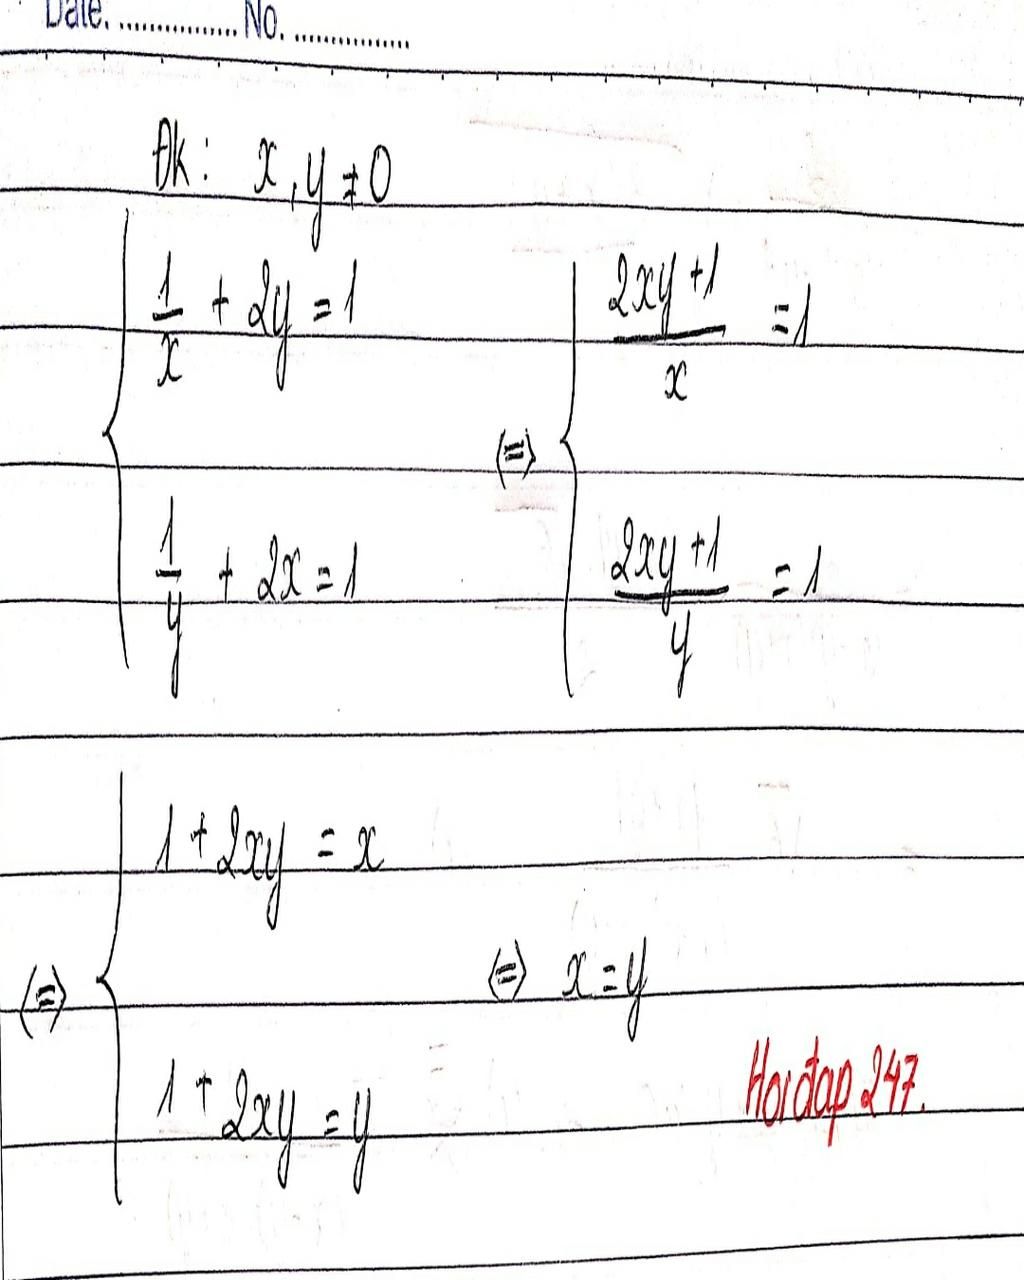 Date. ............... No. ...............
ĐK: x, y ≠ 0
1/x + 2y = 1
(2xy + 1)/x = 1
⇔
1/y + 2x = 1
(2xy + 1)/y = 1
1 + 2xy = x
⇔
⇔ x = y
1 + 2xy = y
Hoidap 247.